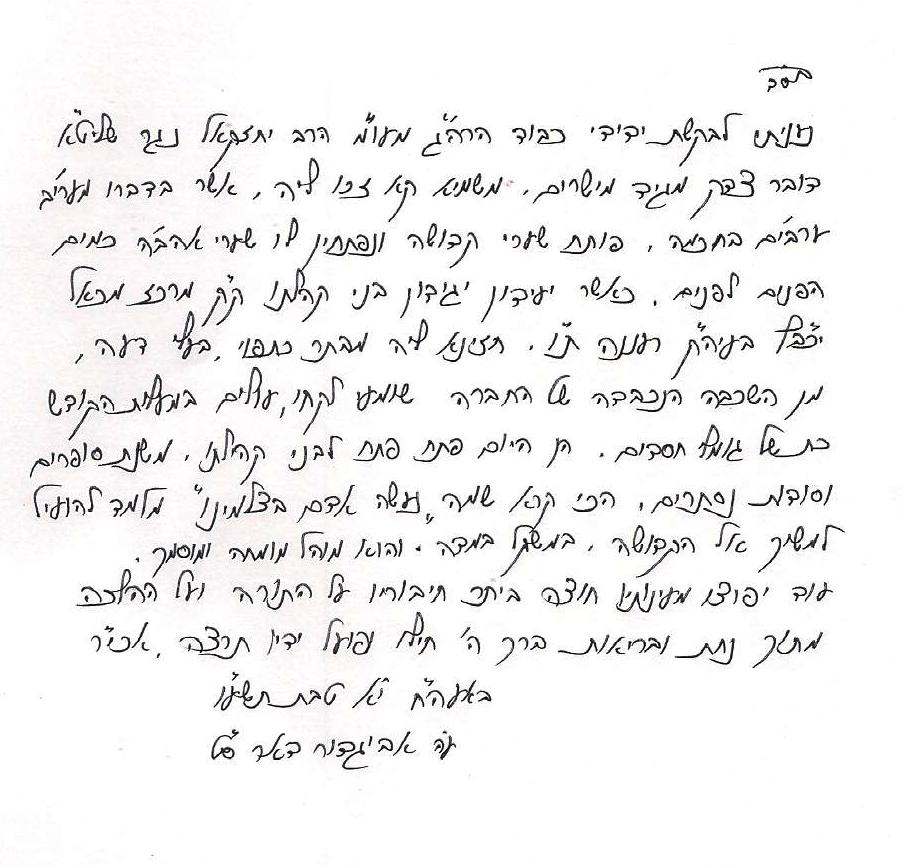 נעניתי לבקשת ידידי כבוד הרה"ג מעו"מ הרב יחזקאל נגר שליט"א
דובר צדק מגיד מישרים. משמיא קא זכו ליה, אשר בדברו מערי"ב
ערבי"ם בחכמה, פותח שערי קדושה ונפתחין לו שערי אהב"ה כמים
הפנים לפנים, כאשר יעידון יגידון בני קהלתו ק"ק מרכז מכאל
יכב"ץ בעיה"ק רעננה ת"ו. חזינא ליה מבתר כתפוי, בעלי דעה,
מן השכבה הנכבדה של החברה שומעי לקחו, עולים במעלות הקודש
כת של גומלי חסדים. הן היום פתח פתח לבני קהלתו, משנת סופרים
וסודות נסתרים, הכי קרא שמה "נעשה אדם בצלמינו" מלמד להועיל
למשוך אל הקדושה, במשקל במדה. והוא מוהל מומחה ומוסמך.
עוד יפוצו מעינותיו חוצה ביתר חיבוריו על התורה ועל ההלכה
מתוך נחת ובריאות ברך ה' חילו ופועל ידיו תרצה, אכי"ר
באעה"ח י"א טבת תשע"ו
ע"ה אביגדור דאר ס"ט